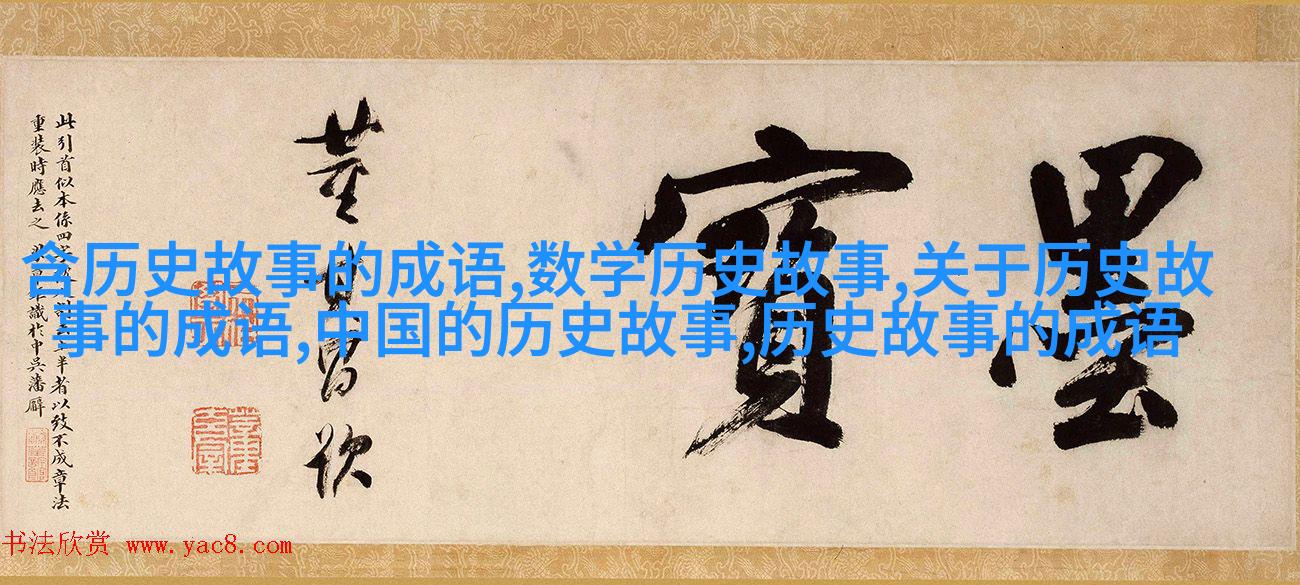 含历史故事的成语,数学历史故事,关于历史故
事的成语,中国的历史故事,历史故事的成语
墨寶
董其昌
此引首似本係四字半者以致不成章法
重裝時應去之識於中吳藩廨
书法欣赏 www.yac8.com